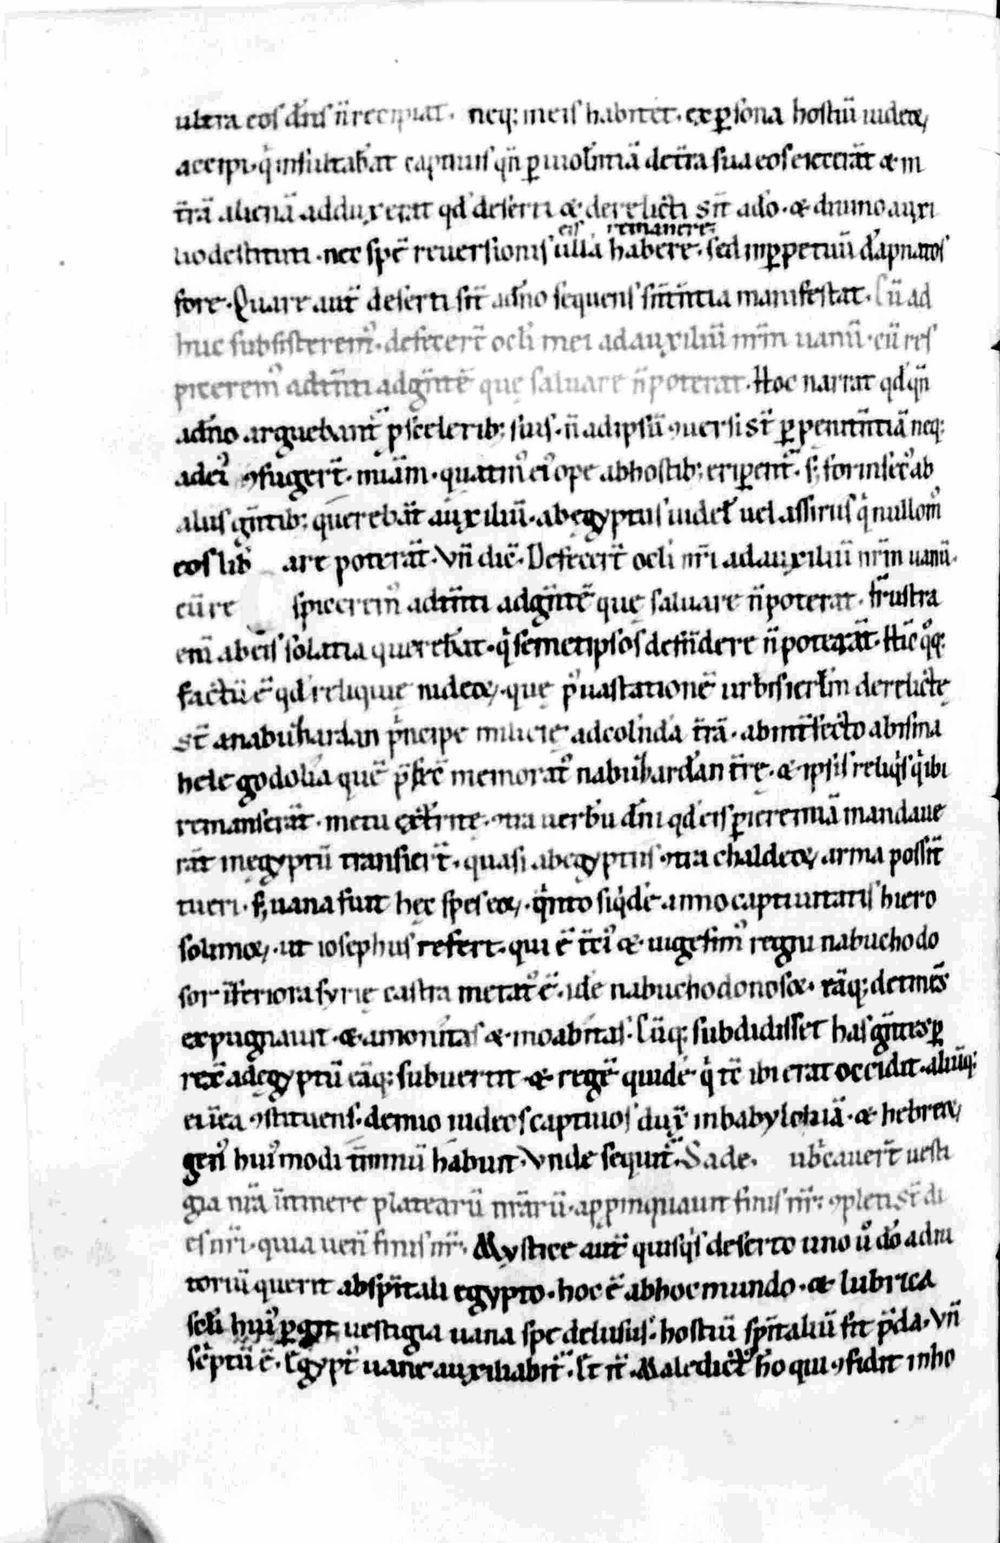 ultra eos dn̄s n̄ recipiat. neq; in eis habitet. ex ꝑsona hostiū iudeoꝝ
accipi. q̇ insultab̄at captiuis qn̄ ꝑ uiolentiā de t̄ra sua eos eiecerāt & in
t̄rā alienā adduxerāt qd̓ deserti & derelicti sin̄t a dō. & diuino auxi
lio destituti. nec spē reuersionis ullā eis remanere habere. sed in ꝑpetuū captiuos
fore. Quare aut̄ deserti sin̄t a dn̄o sequens sn̄tentia manifestat. Cū ad
huc subsisteremꝰ. defecert̄ ocl̓i mei ad auxiliū nr̄m uanū. cū res
piceremꝰ adtn̄ti ad gn̄tē que saluare n̄ poterat. Hoc narrat qd̓ qn̄
a dn̄o arguebant̄ ꝓ sceleribꝫ suis. n̄ ad ipsū ꝯuersi st̄ ꝑ penitn̄tiā neq;
ad eiꝰ ꝯfugert̄ mīam. quatinꝰ eiꝰ ope ab hostibꝫ eriperent̄. sꝫ forinsecꝰ ab
aliis gn̄tibꝫ querebāt auxiliū. ab egyptiis uidel̓ uel assiriis q̇ nullomꝰ
eos lib are poterāt. Vn̄ dic̄. Defecert̄ ocl̓i nr̄i ad auxiliū nr̄m uanū.
cū re spiceremꝰ adtn̄ti ad gn̄tē que saluare n̄ poterat. frustra
enī ab eis solatia querebāt. q̇ semetipsos defendere n̄ poterāt. Hic q̊q;
factū ē qd̓ reliquie iudeoꝝ. que p̓ uastationē urbis ierl̓m derelicte
st̄ a nabuzardan p̓ncipe milicie ad colendā t̄rā. ab int̄fecto ab isma
hele godolia quē p̄fec̄ memoratꝰ nabuzardan t̄re. & ipsis reliq̓s q̓ ibi
remanserāt. metu ext̄rite. ꝯtra uerbū dn̄i qd̓ eis ꝑ ieremiā mandaue
rāt in egyptū transiert̄. quasi ab egyptiis ꝯtra chaldeoꝝ arma possn̄t
tueri. sꝫ uana fuit hec spes eoꝝ. q̓nto siq̓dē anno captiuitatis hiero
solimoꝝ. ut iosephus refert. qui ē tc̄iꝰ & uigesimꝰ regni nabuchodo
sor inferiora syrie castra metatꝰ ē. idē nabuchodonosor. eāq; detinēs
expugnauit. & amonitas & moabitas. Cūq; subdidisset has gn̄tes ꝑ
rexē ad egyptū eāq; subuertit. & regē quidē q̓ tc̄ ibi erat occidit. aliūq;
ei ꝯstituens. denuo iudeos captiuos dux̄ in babyloniā. & hebreoꝝ
genꝰ huiꝰmodi tn̄minū habuit. Vnde sequit̄. Sade. ubr̄cauert̄ uesti
gia nr̄a in itinere platearū nr̄arū. appinquauit finis nr̄. ꝯpleti st̄ di
es nr̄i. quia uen̄ finis nr̄. Mystice aut̄ quisq̓s deserto uno uꝰ dō adiu
toriū querit ab spn̄tali egypto. hoc ē ab hoc mundo. & lubrica
scl̓i huiꝰ ꝑgit uestigia uana spe delusus. hostiū spn̄taliū fit p̄da. Vn̄
sc̓ptū ē. Egyptꝰ uane auxiliabit̄. Et it̄. Maledictꝰ hō qui ꝯfidit in ho